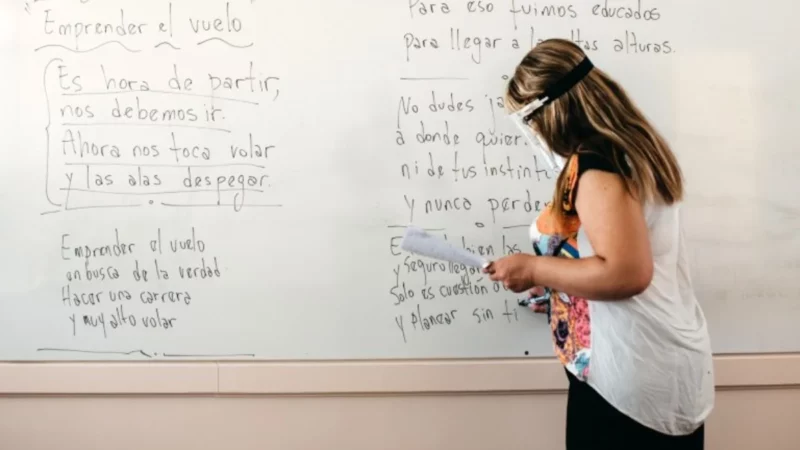 Emprender el vuelo
Es hora de partir,
nos debemos ir.
Ahora nos toca volar
y las alas despegar.
Emprender el vuelo
en busca de la verdad
Hacer una carrera
y muy alto volar
Para eso fuimos educados
para llegar a altas alturas.
No dudes
a donde quier
ni de tus instint
y nunca perde
bien las
y seguro llegar
Solo es cuestión
y planear sin